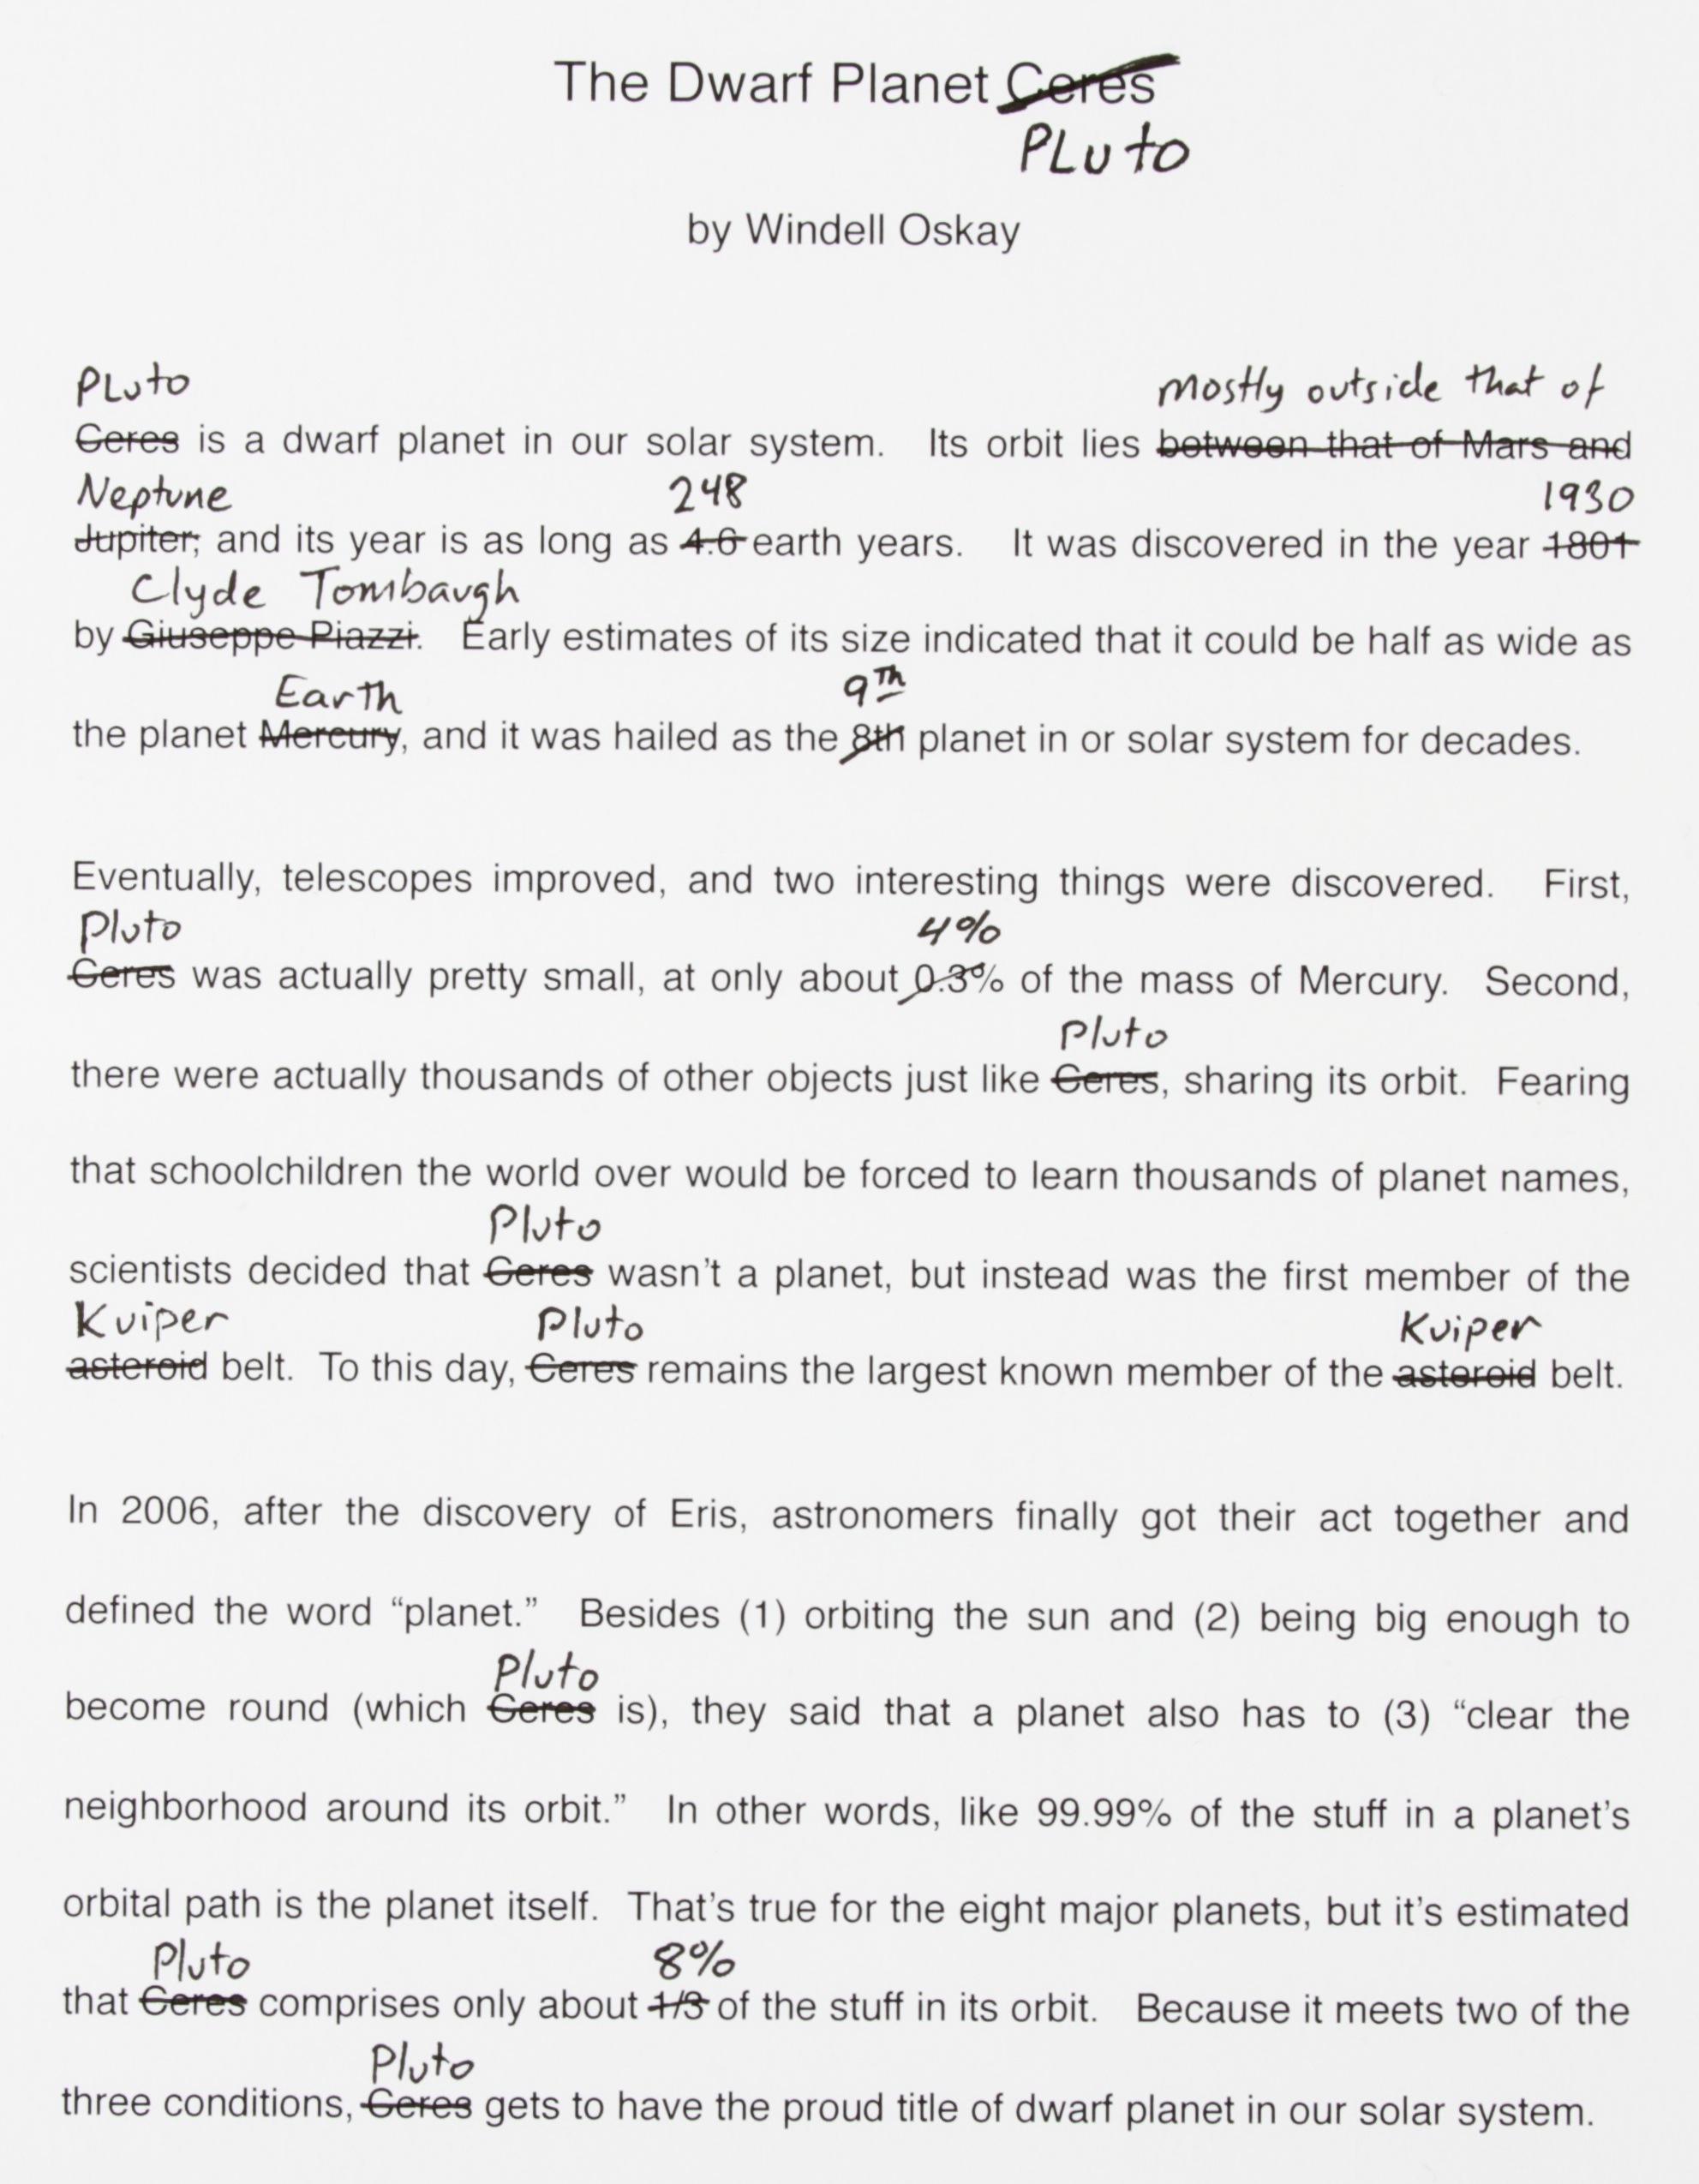 The Dwarf Planet Ceres
PLuto
by Windell Oskay
PLuto mostly outside that of
Ceres is a dwarf planet in our solar system. Its orbit lies between that of Mars and
Neptune 248 1930
Jupiter, and its year is as long as 4.6 earth years. It was discovered in the year 1801
Clyde Tombaugh
by Giuseppe Piazzi. Early estimates of its size indicated that it could be half as wide as
Earth 9Th
the planet Mercury, and it was hailed as the 8th planet in or solar system for decades.
Eventually, telescopes improved, and two interesting things were discovered. First,
Pluto 4%
Ceres was actually pretty small, at only about 0.3% of the mass of Mercury. Second,
Pluto
there were actually thousands of other objects just like Ceres, sharing its orbit. Fearing
that schoolchildren the world over would be forced to learn thousands of planet names,
Pluto
scientists decided that Ceres wasn't a planet, but instead was the first member of the
Kuiper Pluto Kuiper
asteroid belt. To this day, Ceres remains the largest known member of the asteroid belt.
In 2006, after the discovery of Eris, astronomers finally got their act together and
defined the word “planet.” Besides (1) orbiting the sun and (2) being big enough to
Pluto
become round (which Ceres is), they said that a planet also has to (3) “clear the
neighborhood around its orbit.” In other words, like 99.99% of the stuff in a planet's
orbital path is the planet itself. That's true for the eight major planets, but it's estimated
Pluto 8%
that Ceres comprises only about 1/3 of the stuff in its orbit. Because it meets two of the
Pluto
three conditions, Ceres gets to have the proud title of dwarf planet in our solar system.